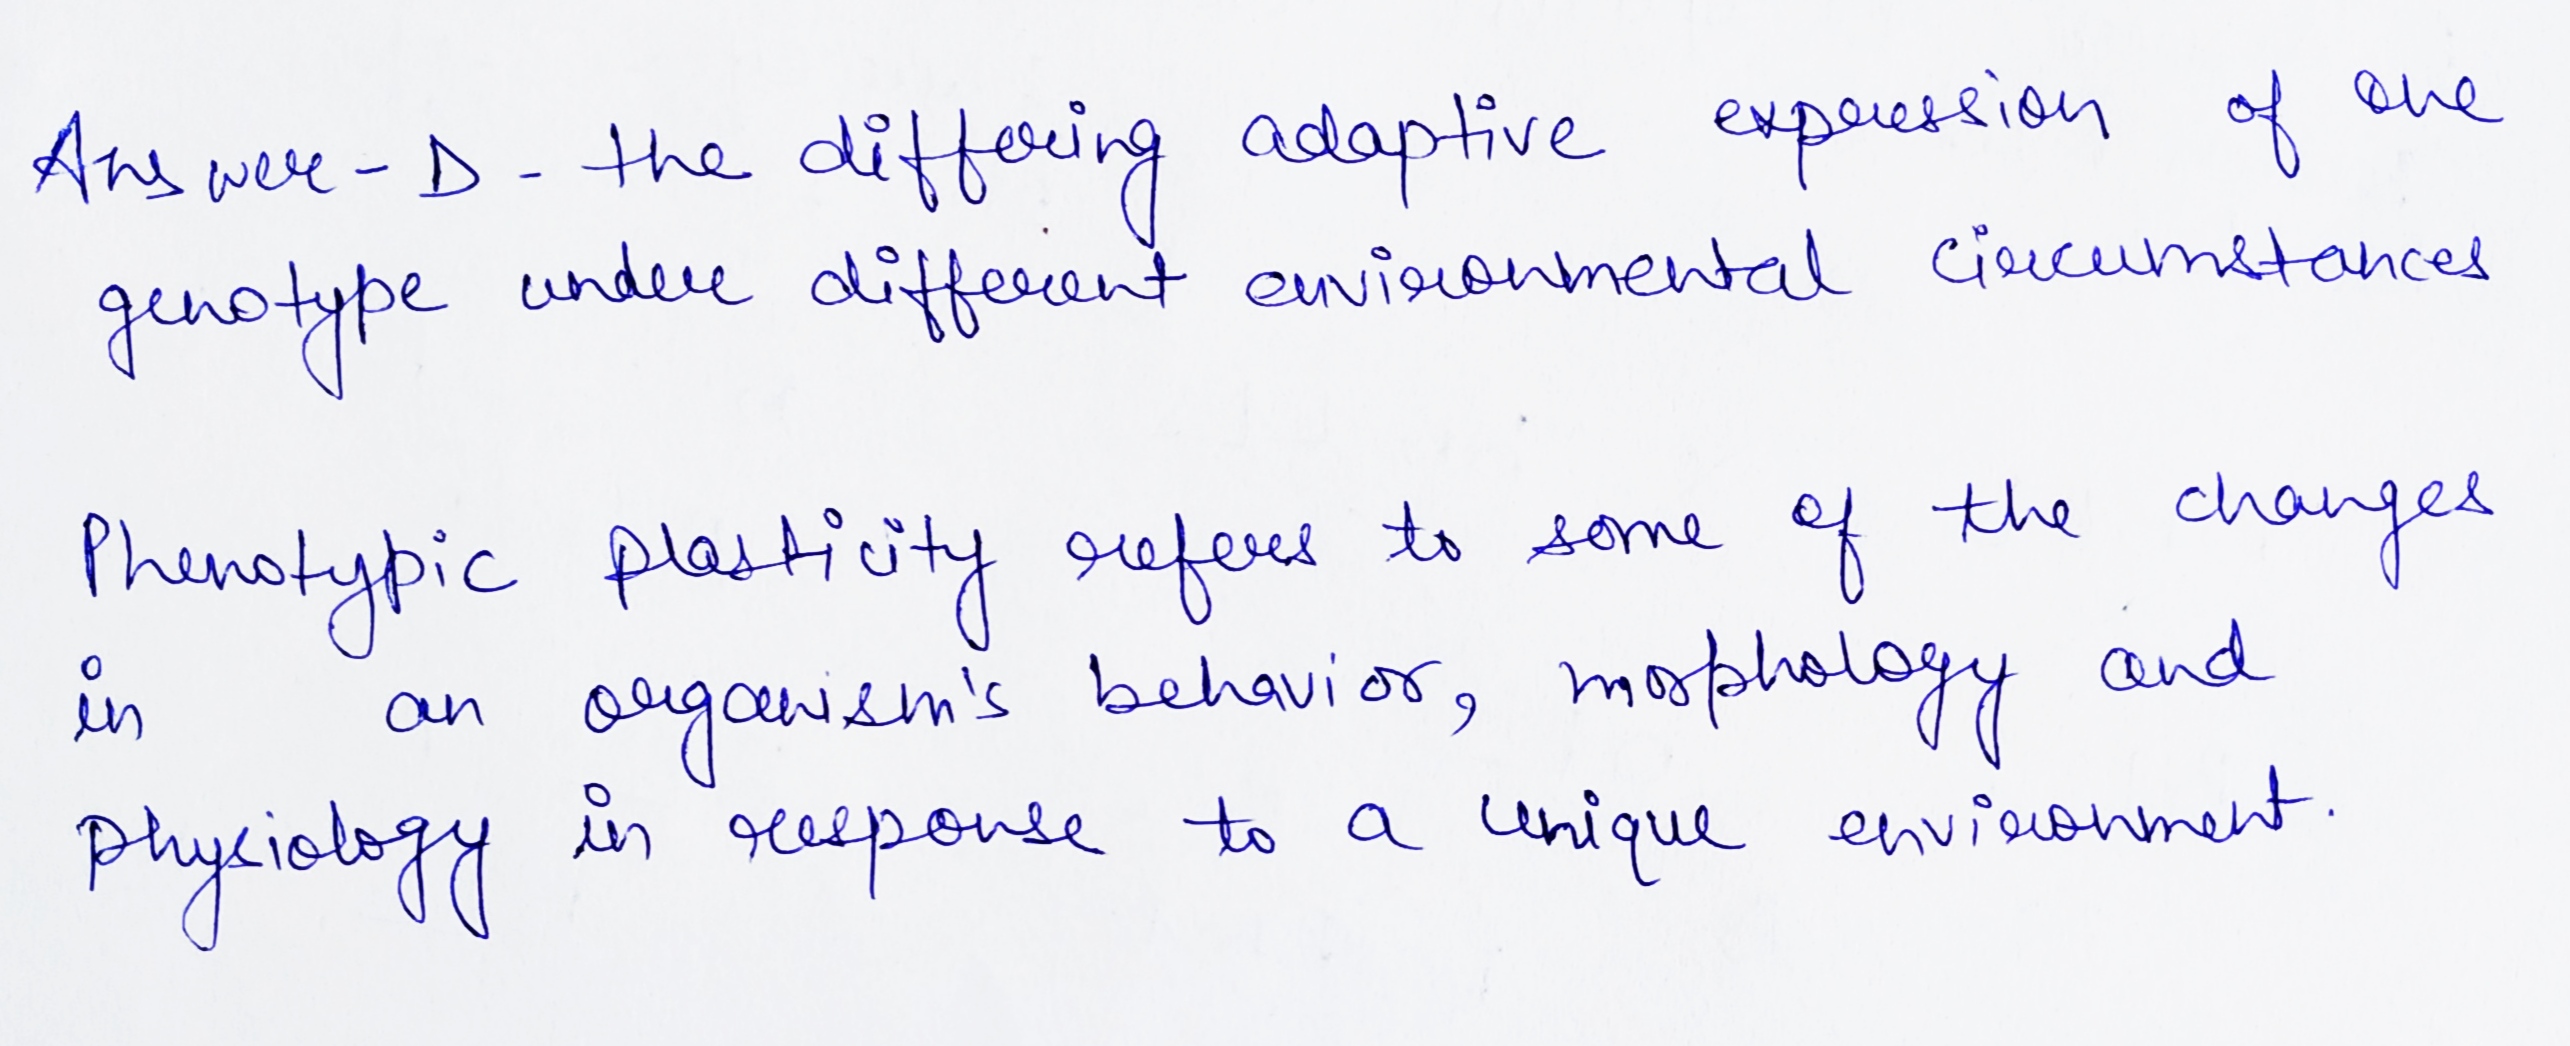 Answer - D - the differing adaptive expression of one
genotype under different environmental circumstances
Phenotypic plasticity refers to some of the changes
in an organism's behavior, morphology and
physiology in response to a unique environment.